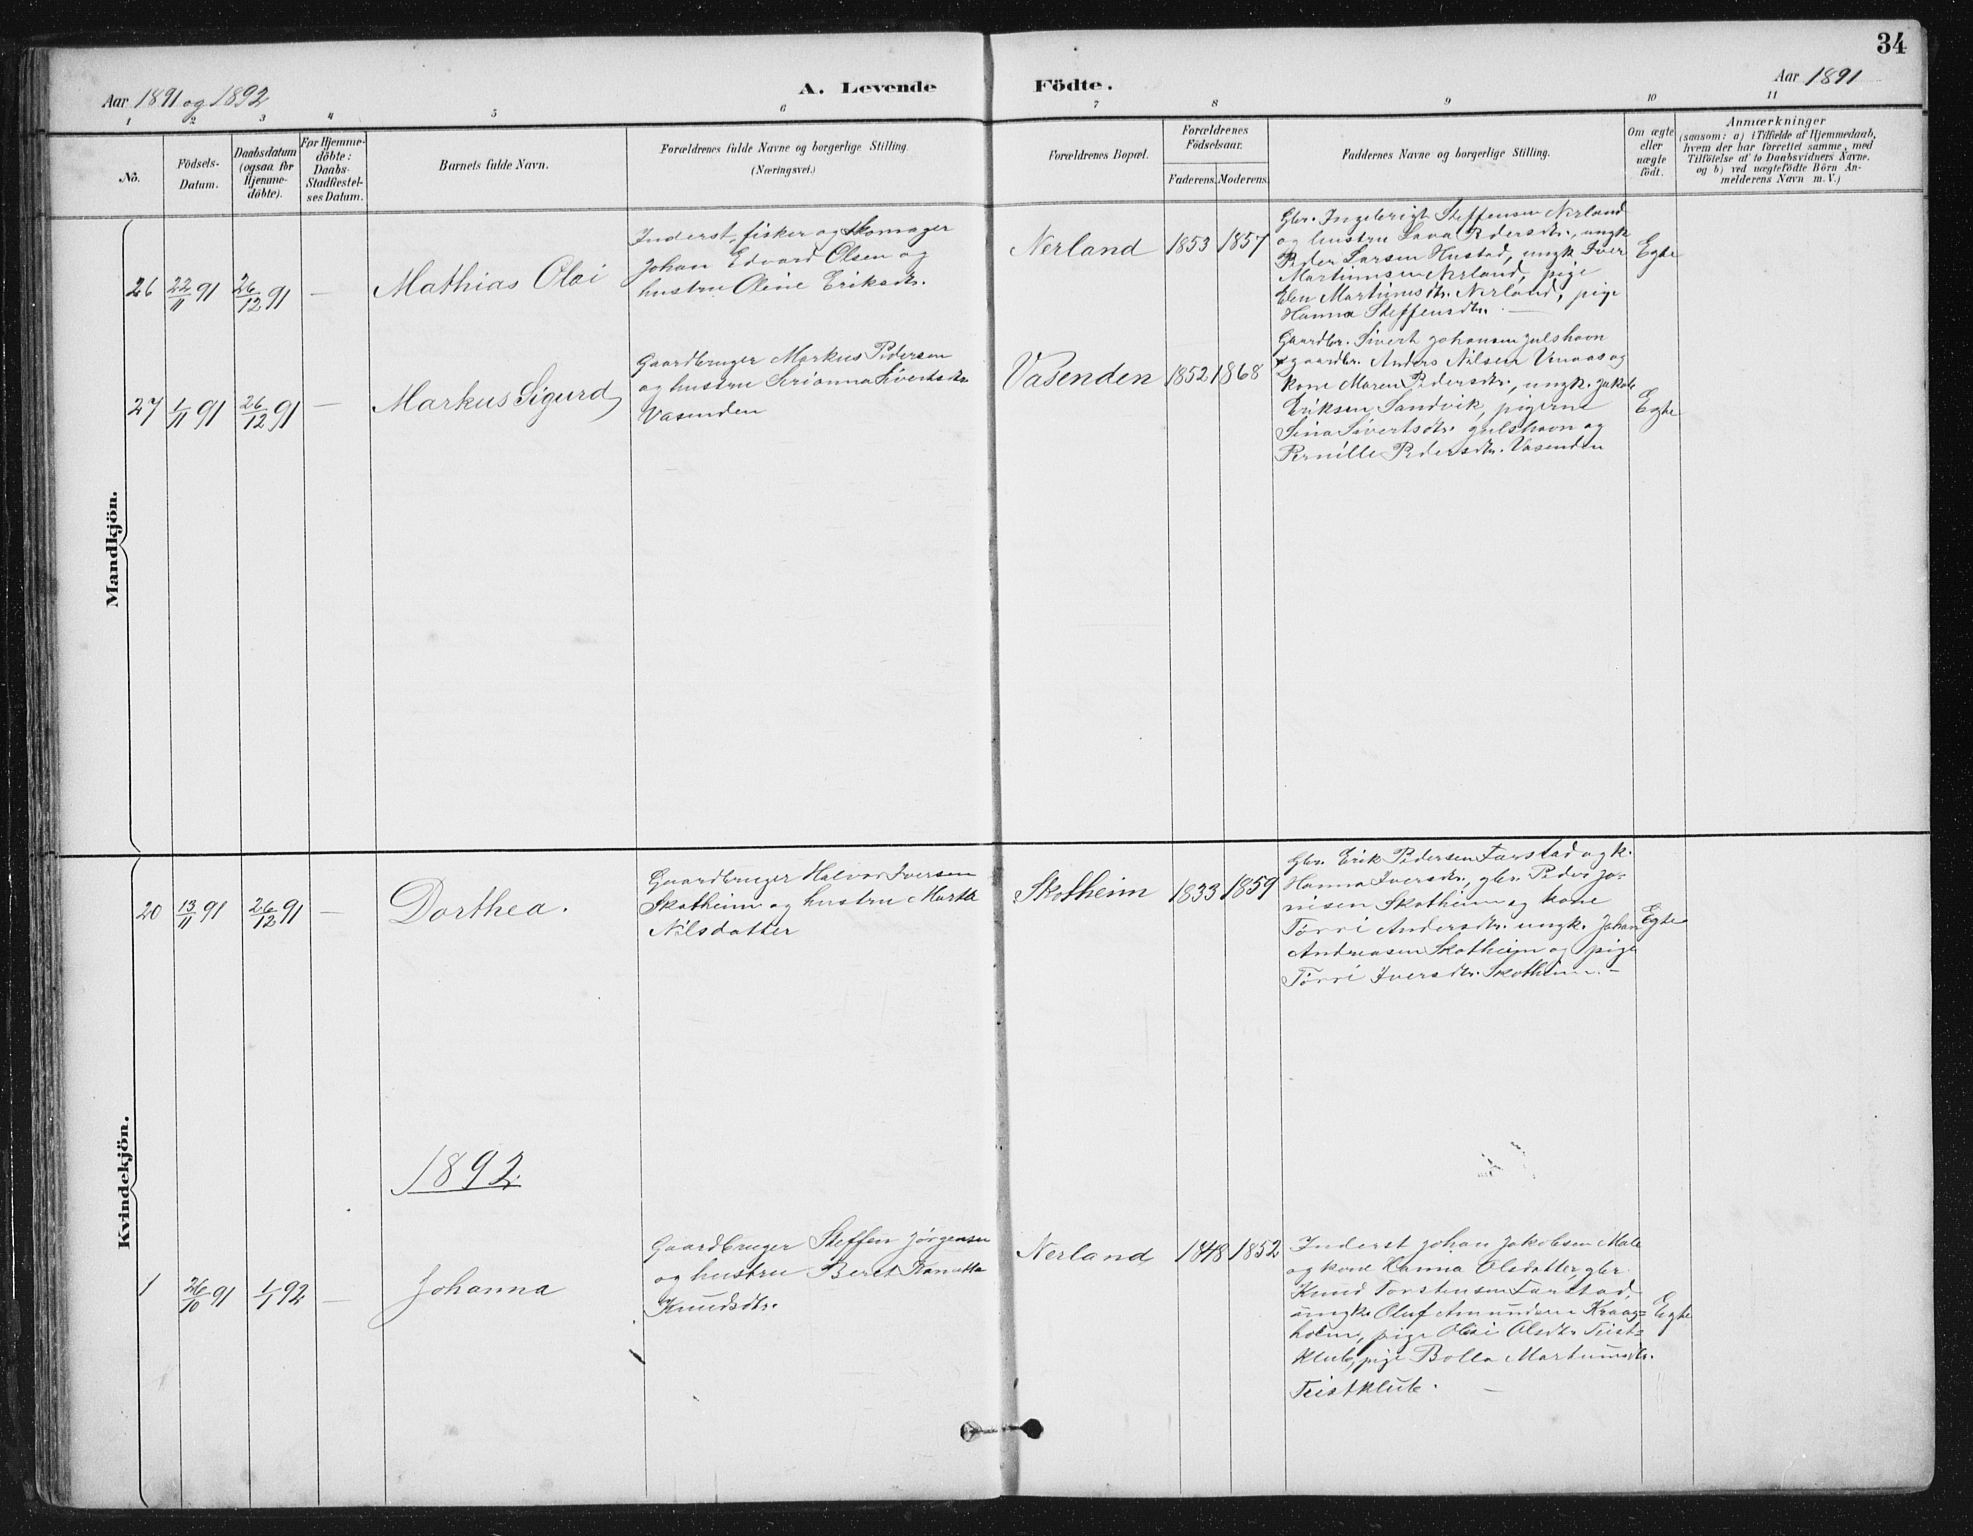 34
Aar 1891 og 1892
A. Levende
Födte.
Aar 1891
1 2 3 4 5 6 7 8 9 10 11
No.
Födsels-
Datum.
Daabsdatum
(ogsaa for
Hjemme-
döbte).
For Hjemme-
döbte:
Daabs-
Stadfæstel-
ses Datum.
Barnets fulde Navn.
Forældrenes fulde Navne og borgerlige Stilling.
(Næringsvei.)
Forældrenes Bopæl.
Forældrenes
Födselsaar.
Faderens. Moderens.
Faddernes Navne og borgerlige Stilling.
Om ægte
eller
uægte
födt.
Anmærkninger
(saasom: a) i Tilfælde af Hjemmedaab,
hvem der har forrettet samme, med
Tilföielse af to Daabsvidners Navne,
og b) ved uægtefödte Börn An-
melderens Navn m. V.)
Mandkjön.
26 22/11 91 26/12 91 — Mathias Olai
Inderst, fisker og Skomager
Johan Edvard Olsen og
hustru Oline Eriksdtr.
Nerland 1853 1857
Gbr. Ingebrigt Steffensen Nerland
og hustru Lava Pedersdtr., ungk.
Peder Larsen Hustad, ungk. Iver
Martinusen Nerland, pige
Elen Martinusdtr. Nerland, pige
Hanna Steffensdtr. —
Egte
27 1/11 91 26/12 91 — Markus Sigurd
Gaardbruger Markus Pedersen
og hustru Serianna Sivertsdtr
Vasenden
Vasenden 1852 1868
Gaardbr. Sivert Johansen Julshavn
gaardbr. Anders Nilsen Venaas og
kone Maren Pedersdtr., ungk. Jakob
Eriksen Sandvik, pigerne
Sina Sivertsdtr. Julshavn og
Pernille Pedersdtr. Vasenden
Egte
Kvindekjön.
20 13/11 91 26/12 91 — Dorthea.
Gaardbruger Halvor Iversen
Skotheim og hustru Marta
Nilsdatter
Skotheim 1833 1859
Gbr. Erik Pedersen Farstad og k.
Hanna Iversdtr., gbr. Peder Jo-
nisen Skotheim og kone
Törri Andersdtr. ungk. Johan
Andreasen Skotheim og pige
Törri Iversdtr. Skotheim. —
Egte
1892
1 26/10 91 1/1 92 — Johanna
Gaardbruger Steffen Jørgensen
og hustru Beret
Knudsdtr.
Nerland 1848 1852
Inderst Johan Jakobsen Male
og kone Hanna Olsdatter, gbr
Knud Torstensen Farstad,
ungk. Oluf Amundsen Kraag=
holm, pige Olai Olsdtr. Teist=
klub, pige Bolla Martinusdtr.
Teistklub. —
Egte